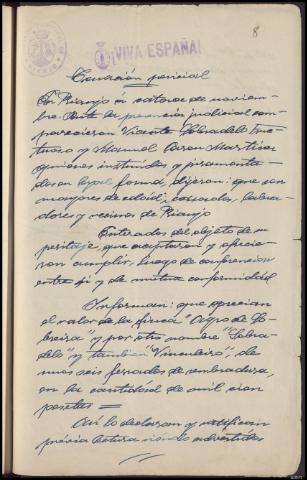 8
¡VIVA ESPAÑA!
Tasación pericial
En Rianjo a catorce de noviem-
bre. Ante la presencia judicial com-
parecieron Vicente
y Manuel Martínez
quienes instruidos y juramenta-
dos en legal forma, dijeron: que son
mayores de edad, casados, labra-
dores y vecinos de Rianjo
Enterados del objeto de su
peritaje, que aceptaron y ofrecie-
ron cumplir, luego de conferenciar
entre sí y de mutua conformidad
Informan: que aprecian
el valor de la finca "Agro de
" y por otro nombre "
" y también "Vinculeiro", de
unos seis ferrados de sembradura,
en la cantidad de mil cien
pesetas =
Así lo declaran y ratifican
previa lectura siendo advertidos